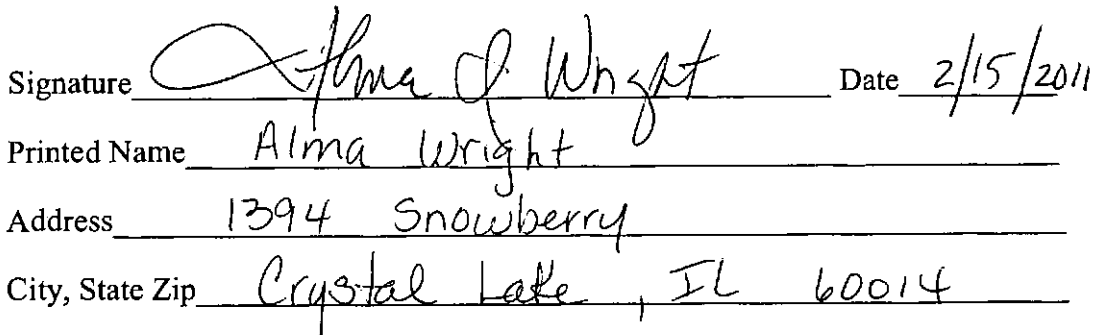 Signature Alma J. Wright Date 2/15/2011
Printed Name Alma Wright
Address 1394 Snowberry
City, State Zip Crystal Lake, IL 60014